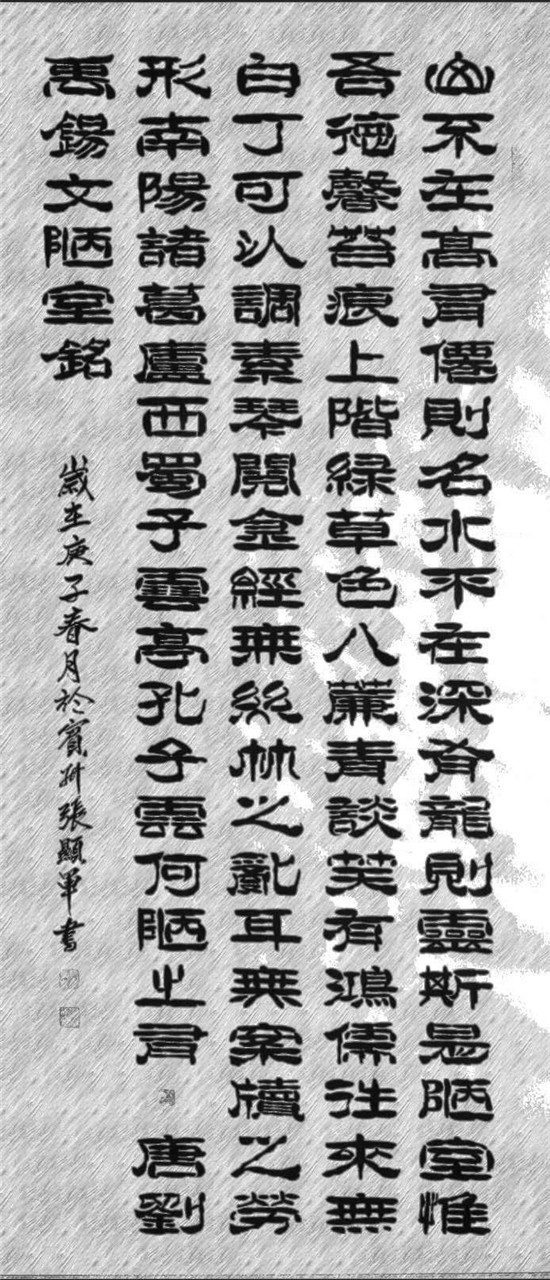 山不在高有僊則名水不在深有龍則靈斯是陋室惟
吾德馨苔痕上階緑草色入簾青談笑有鴻儒往來無
白丁可以調素琴閱金經無絲竹之亂耳無案牘之勞
形南陽諸葛廬西蜀子雲亭孔子雲何陋之有 唐劉
禹錫文陋室銘
歲在庚子春月於賓州張顯軍書